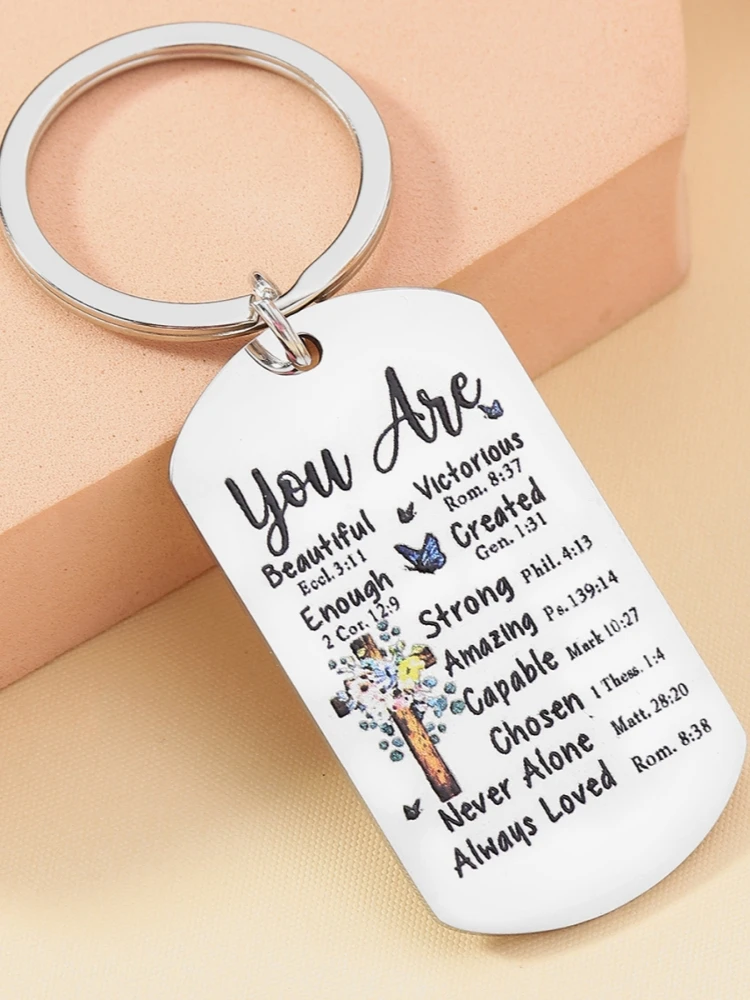 You Are
Beautiful
Eccl.3:11
Victorious
Rom. 8:37
Enough
2 Cor. 12:9
Created
Gen. 1:31
Strong Phil. 4:13
Amazing Ps. 139:14
Capable Mark 10:27
Chosen 1 Thess. 1:4
Never Alone Matt. 28:20
Always Loved Rom. 8:38